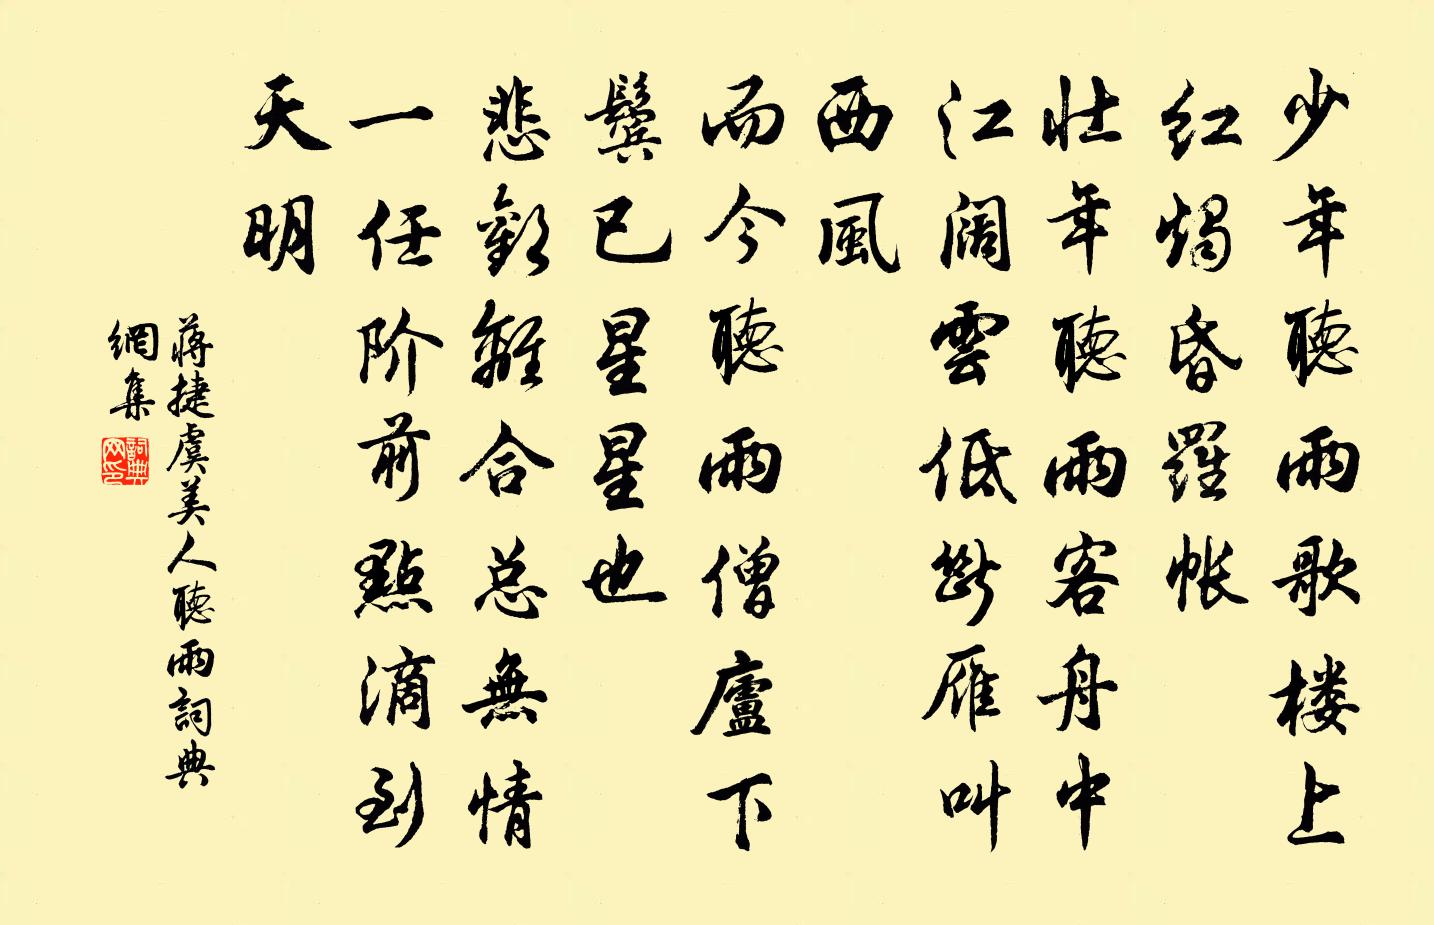 少年聽雨歌楼上
红烛昏羅帐
壮年聽雨客舟中
江阔雲低斷雁叫
西風
而今聽雨僧廬下
鬓已星星也
悲歡離合总無情
一任阶前點滴到
天明
蒋捷虞美人聽雨詞典
網集
詞典
网印